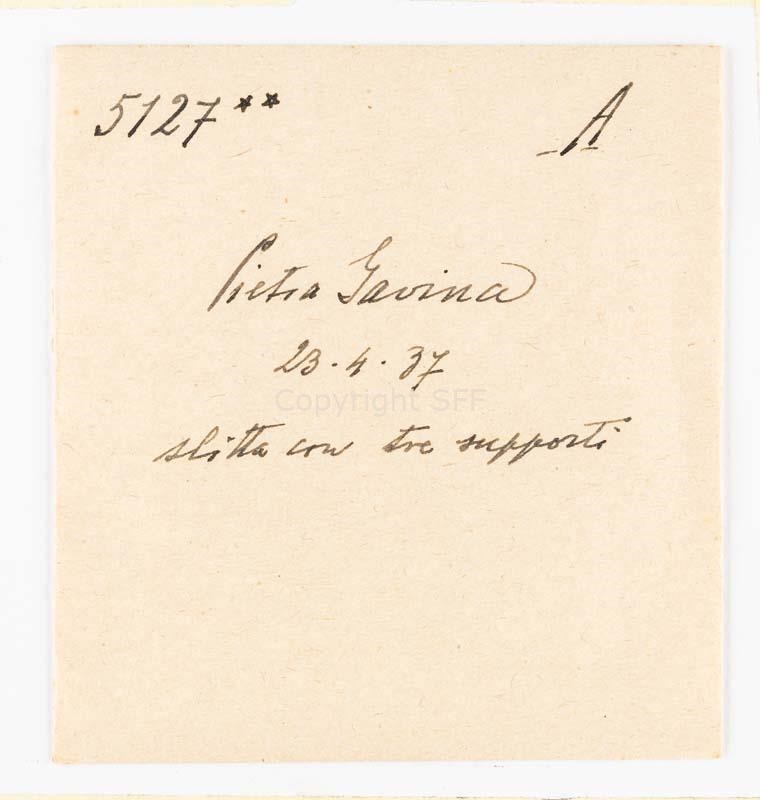 5127**
A
Pietra Gavina
23.4.37
Copyright SFF
slitta con tre supporti